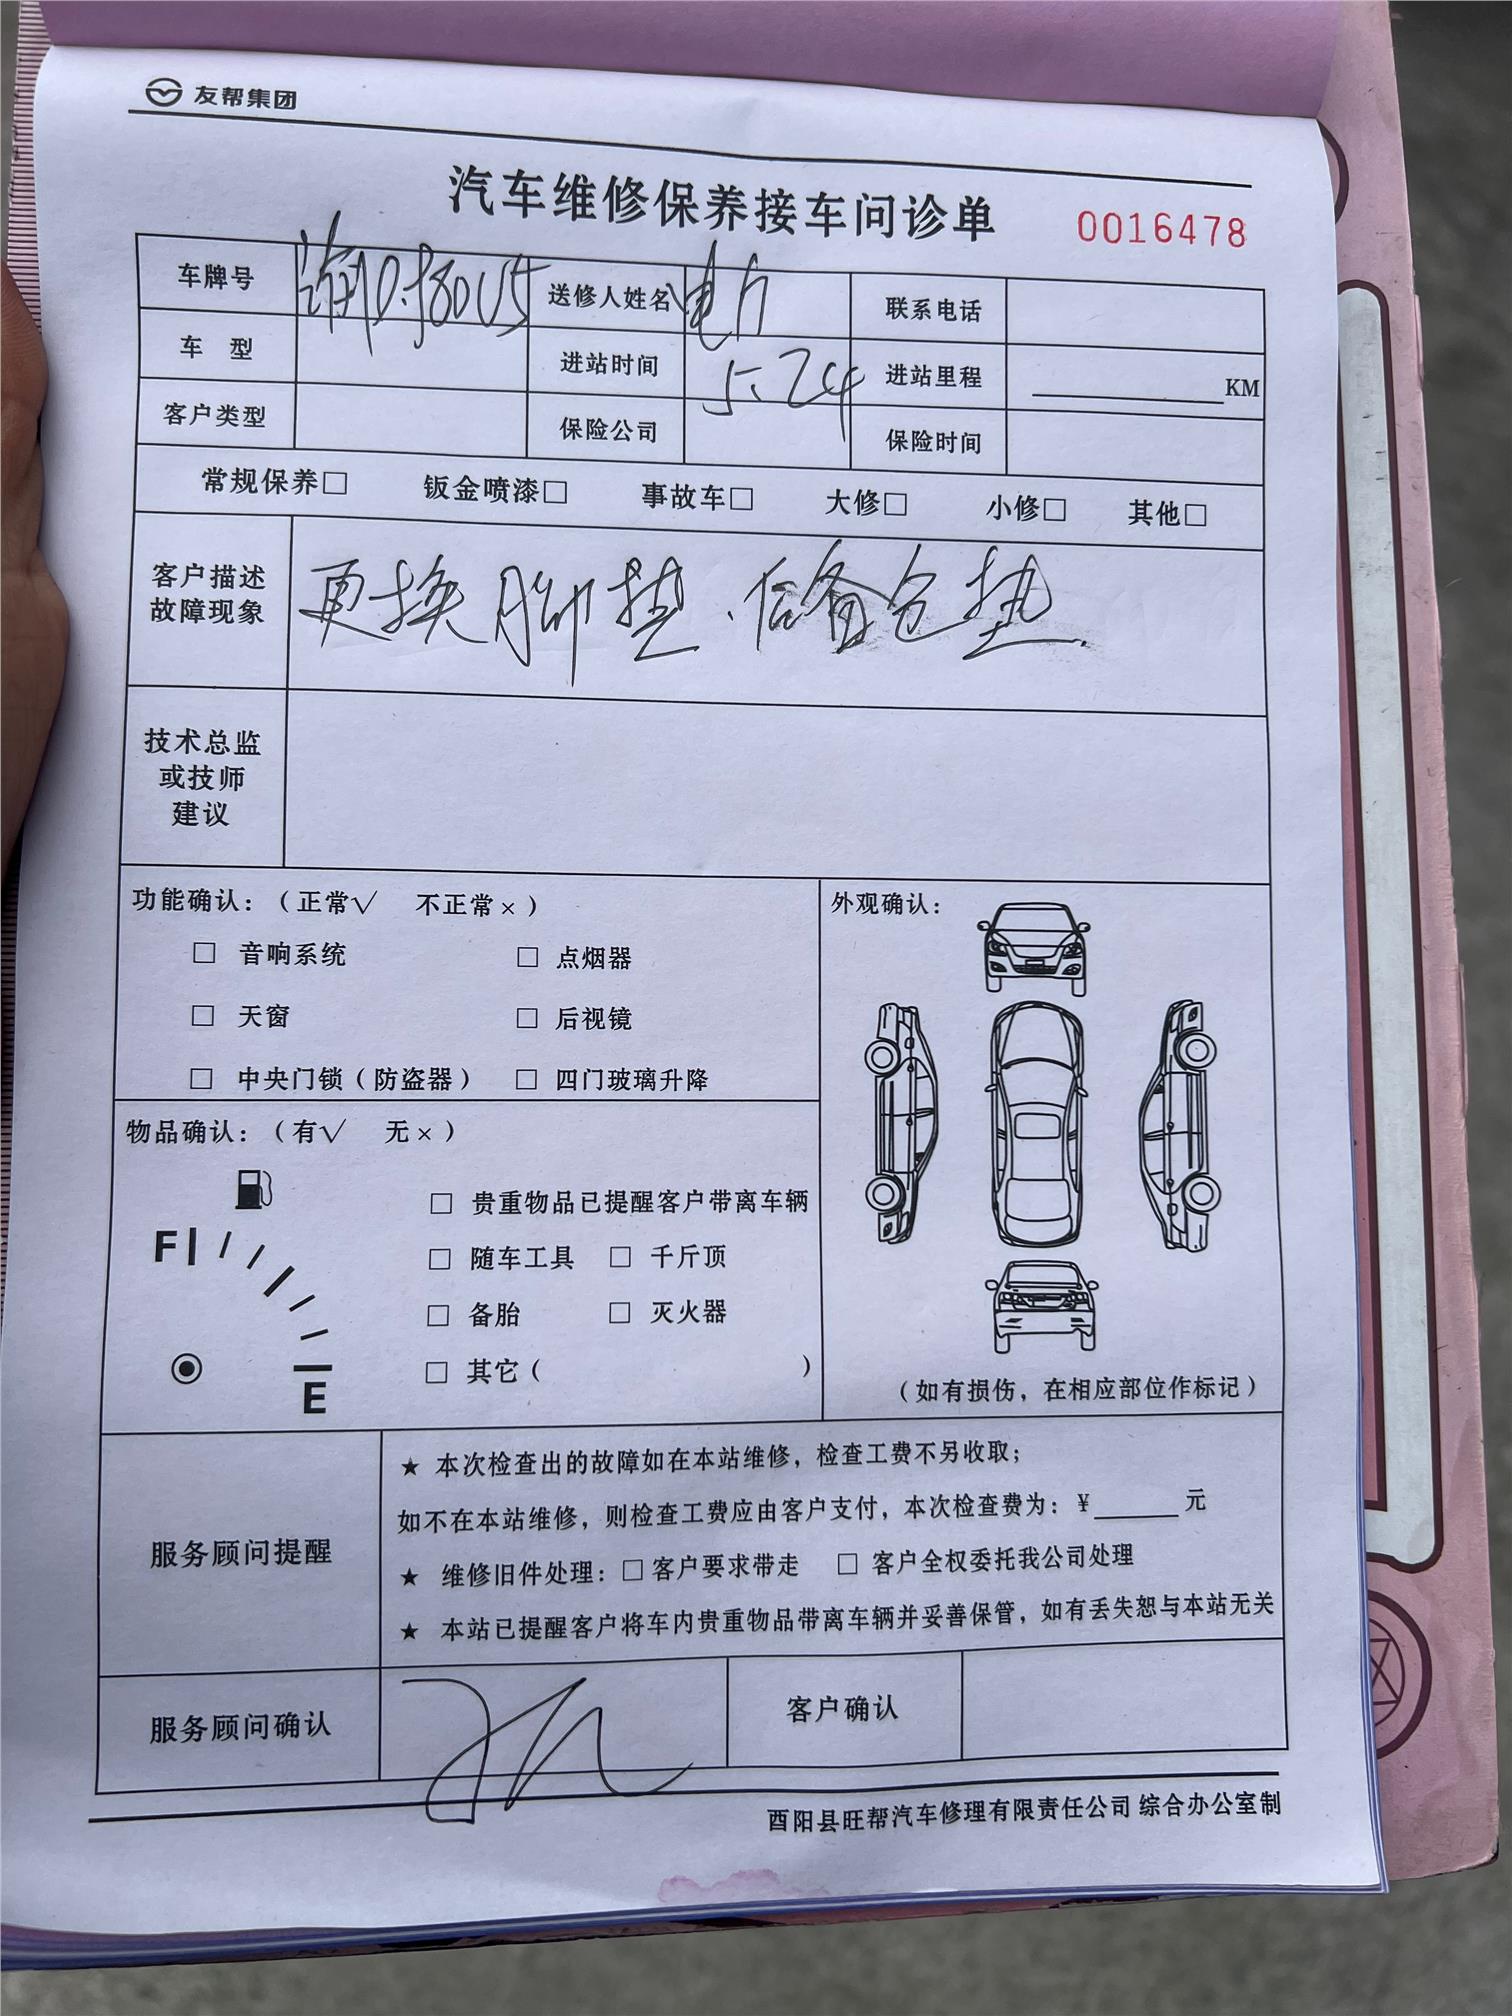 友帮集团
汽车维修保养接车问诊单 0016478
车牌号 送修人姓名 电力 联系电话
车 型 进站时间 5.24 进站里程 KM
客户类型 保险公司 保险时间
常规保养□ 钣金喷漆□ 事故车□ 大修□ 小修□ 其他□
客户描述
故障现象
更换脚垫、后备仓垫.
技术总监
或技师
建议
功能确认：（正常√ 不正常×）
□ 音响系统 □ 点烟器
□ 天窗 □ 后视镜
□ 中央门锁（防盗器） □ 四门玻璃升降
外观确认：
（如有损伤，在相应部位作标记）
物品确认：（有√ 无×）
F
E
□ 贵重物品已提醒客户带离车辆
□ 随车工具 □ 千斤顶
□ 备胎 □ 灭火器
□ 其它（ ）
服务顾问提醒
★ 本次检查出的故障如在本站维修，检查工费不另收取；
如不在本站维修，则检查工费应由客户支付，本次检查费为：￥ 元
★ 维修旧件处理：□客户要求带走 □ 客户全权委托我公司处理
★ 本站已提醒客户将车内贵重物品带离车辆并妥善保管，如有丢失恕与本站无关
服务顾问确认 客户确认
酉阳县旺帮汽车修理有限责任公司 综合办公室制